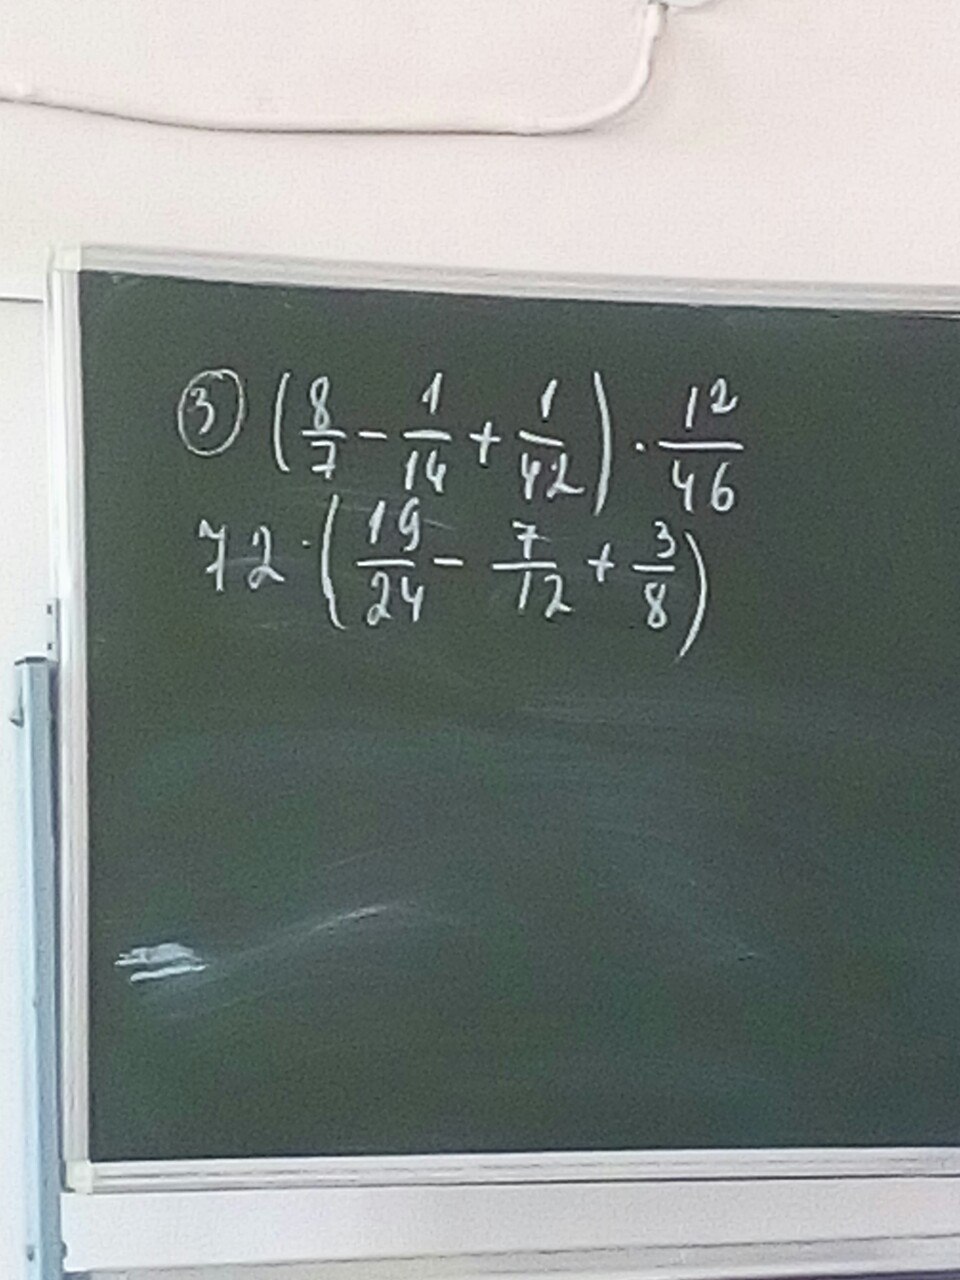 ③ (8/7 - 1/14 + 1/42) · 12/46
72 · (19/24 - 7/12 + 3/8)